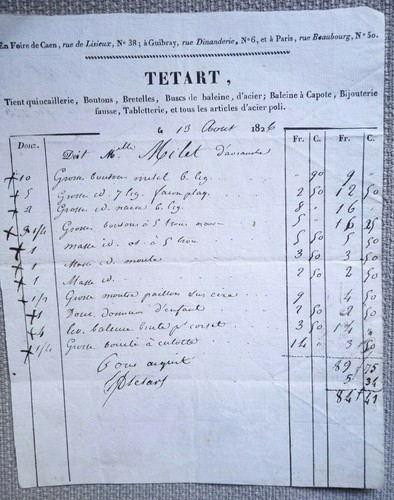 En Foire de Caen, rue de Lisieux, N° 38; à Guibray, rue Dinanderie, N° 6, et à Paris, rue Beaubourg, N° 50.
TETART,
Tient quincaillerie, Boutons, Bretelles, Buscs de baleine, d'acier; Baleine à Capote, Bijouterie
fausse, Tabletterie, et tous les articles d'acier poli.
Le 13 Aout 1826
Douz. Fr. C. Fr. C.
Doit Melle Milet d'avranche
10 Grosse boutons metel 6 lig. 90 9
5 Grosse id 7 lig. 2 50 12 50
2 Grosse id nacre 6 lig. 8 16
1/4 Grosse boutons à 5 trou 5 25
1 masse id os à 5 trou 5 50 5 50
1 Masse id moule 3 50 3 50
1 Masse id 2 50 2 50
1/2 Grosse 9 4 50
1 Douz. d'enfant 2 50 2 50
4 baleine p' corset 3 50 14
1/4 Grosse boucle à culotte 14 3 50
89 75
Pour acquit 5 34
Ptetart 84 41